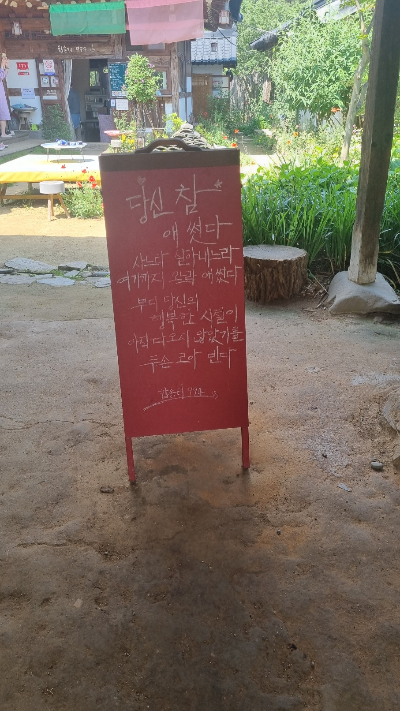 당신 참
애 썼다
사느라 살아내느라
여기까지 오느라 애썼다
부디 당신의
행복한 시절이
아직 다 오지 않았기를
두손 모아 빈다